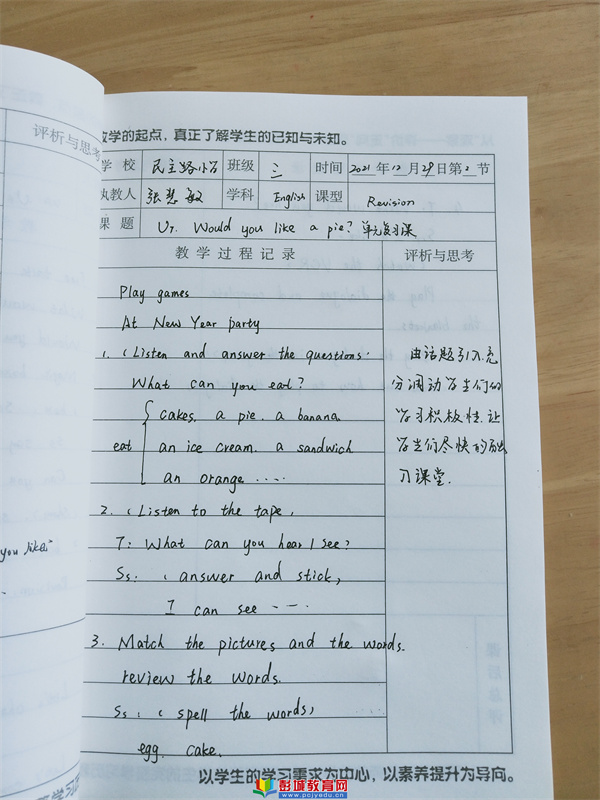 评析与思考
教学的起点，真正了解学生的已知与未知。
学校 民主路小学 班级 三 时间 2021年12月29日第2节
执教人 张慧敏 学科 English 课型 Revision
课题 U7. Would you like a pie? 单元复习课
教学过程记录 评析与思考
Play games
At New Year party
1. (Listen and answer the questions.
What can you eat?
cakes. a pie. a banana
eat an ice cream. a sandwich
an orange ....
由话题引入充
分调动学生们的
学习积极性.让
学生们尽快的
习课堂.
2. (Listen to the tape,
T: What can you hear / see?
Ss: (answer and stick,
I can see ...
3. Match the pictures and the words.
review the words.
Ss: (spell the words)
egg. cake.
you like"
以学生的学习需求为中心，以素养提升为导向。
彭城教育网
www.pcjyedu.cn